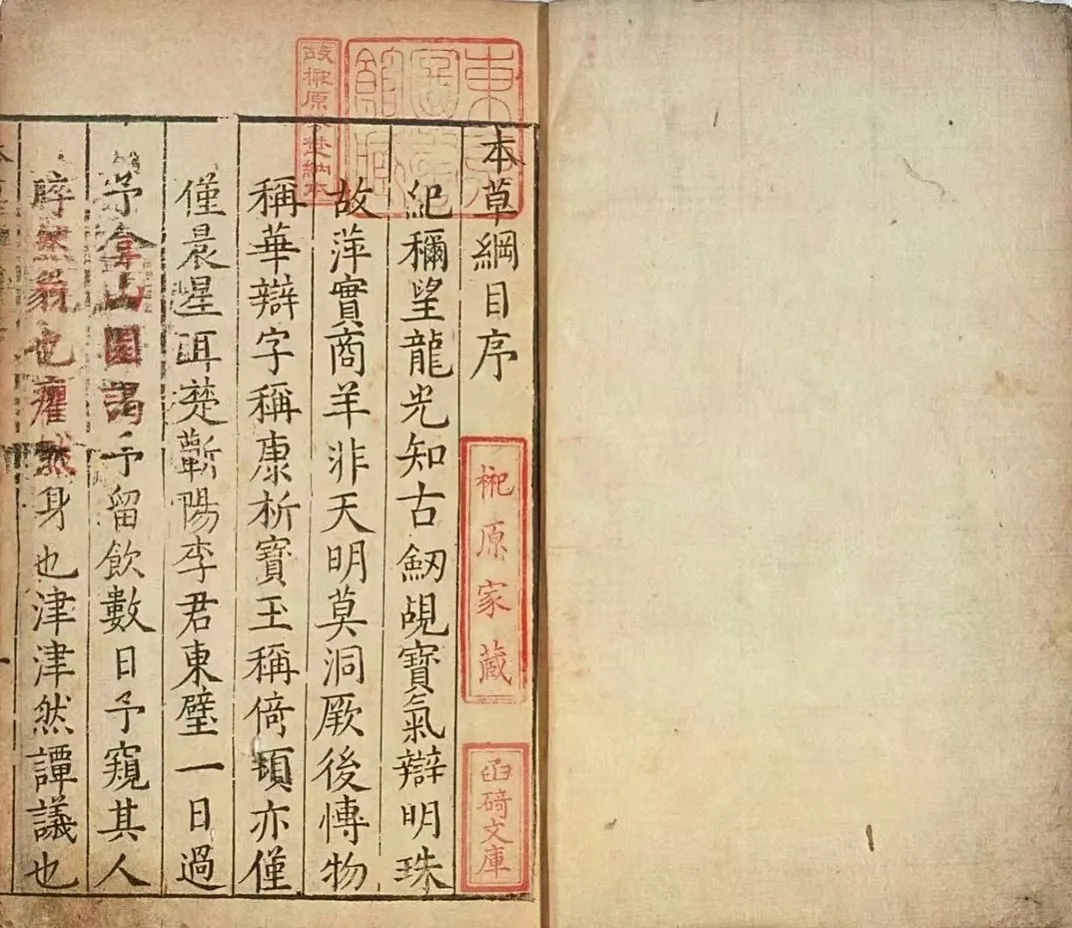 本草綱目序
紀穪望龍光知古劒覘寶氣辯明珠
故萍實商羊非天明莫洞厥後愽物
稱華辯字稱康析寶玉稱倚頓亦僅
僅晨星耳楚蘄陽李君東璧一日過
予弇山園謁予留飲數日予窺其人
睟然貌也癯然身也津津然譚議也
東京圖書館藏
故榊原埜納本
榊原家藏
函碕文庫